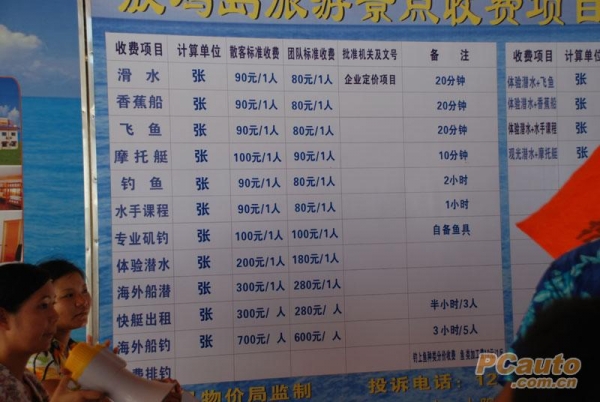 放鸡岛旅游景点收费项目
收费项目 计算单位 散客标准收费 团队标准收费 批准机关及文号 备 注
滑 水 张 90元/1人 80元/1人 企业定价项目 20分钟
香蕉船 张 90元/1人 80元/1人 20分钟
飞 鱼 张 90元/1人 80元/1人 20分钟
摩托艇 张 100元/1人 90元/1人 10分钟
钓 鱼 张 90元/1人 80元/1人 2小时
水手课程 张 90元/1人 80元/1人 1小时
专业矶钓 张 100元/1人 100元/1人 自备鱼具
体验潜水 张 200元/1人 180元/1人
海外船潜 张 300元/1人 280元/1人
快艇出租 张 300元/ 人 280元/ 人 半小时/3人
海外船钓 张 700元/ 人 600元/ 人 3小时/5人
费排钓 钓上鱼种类分价收费
收费项目 计算
体验潜水+飞鱼 张
体验潜水+香蕉船 张
体验潜水+水手课程 张
观光潜水+摩托艇 张
物价局监制 投诉电话：12
PCauto
.com.cn